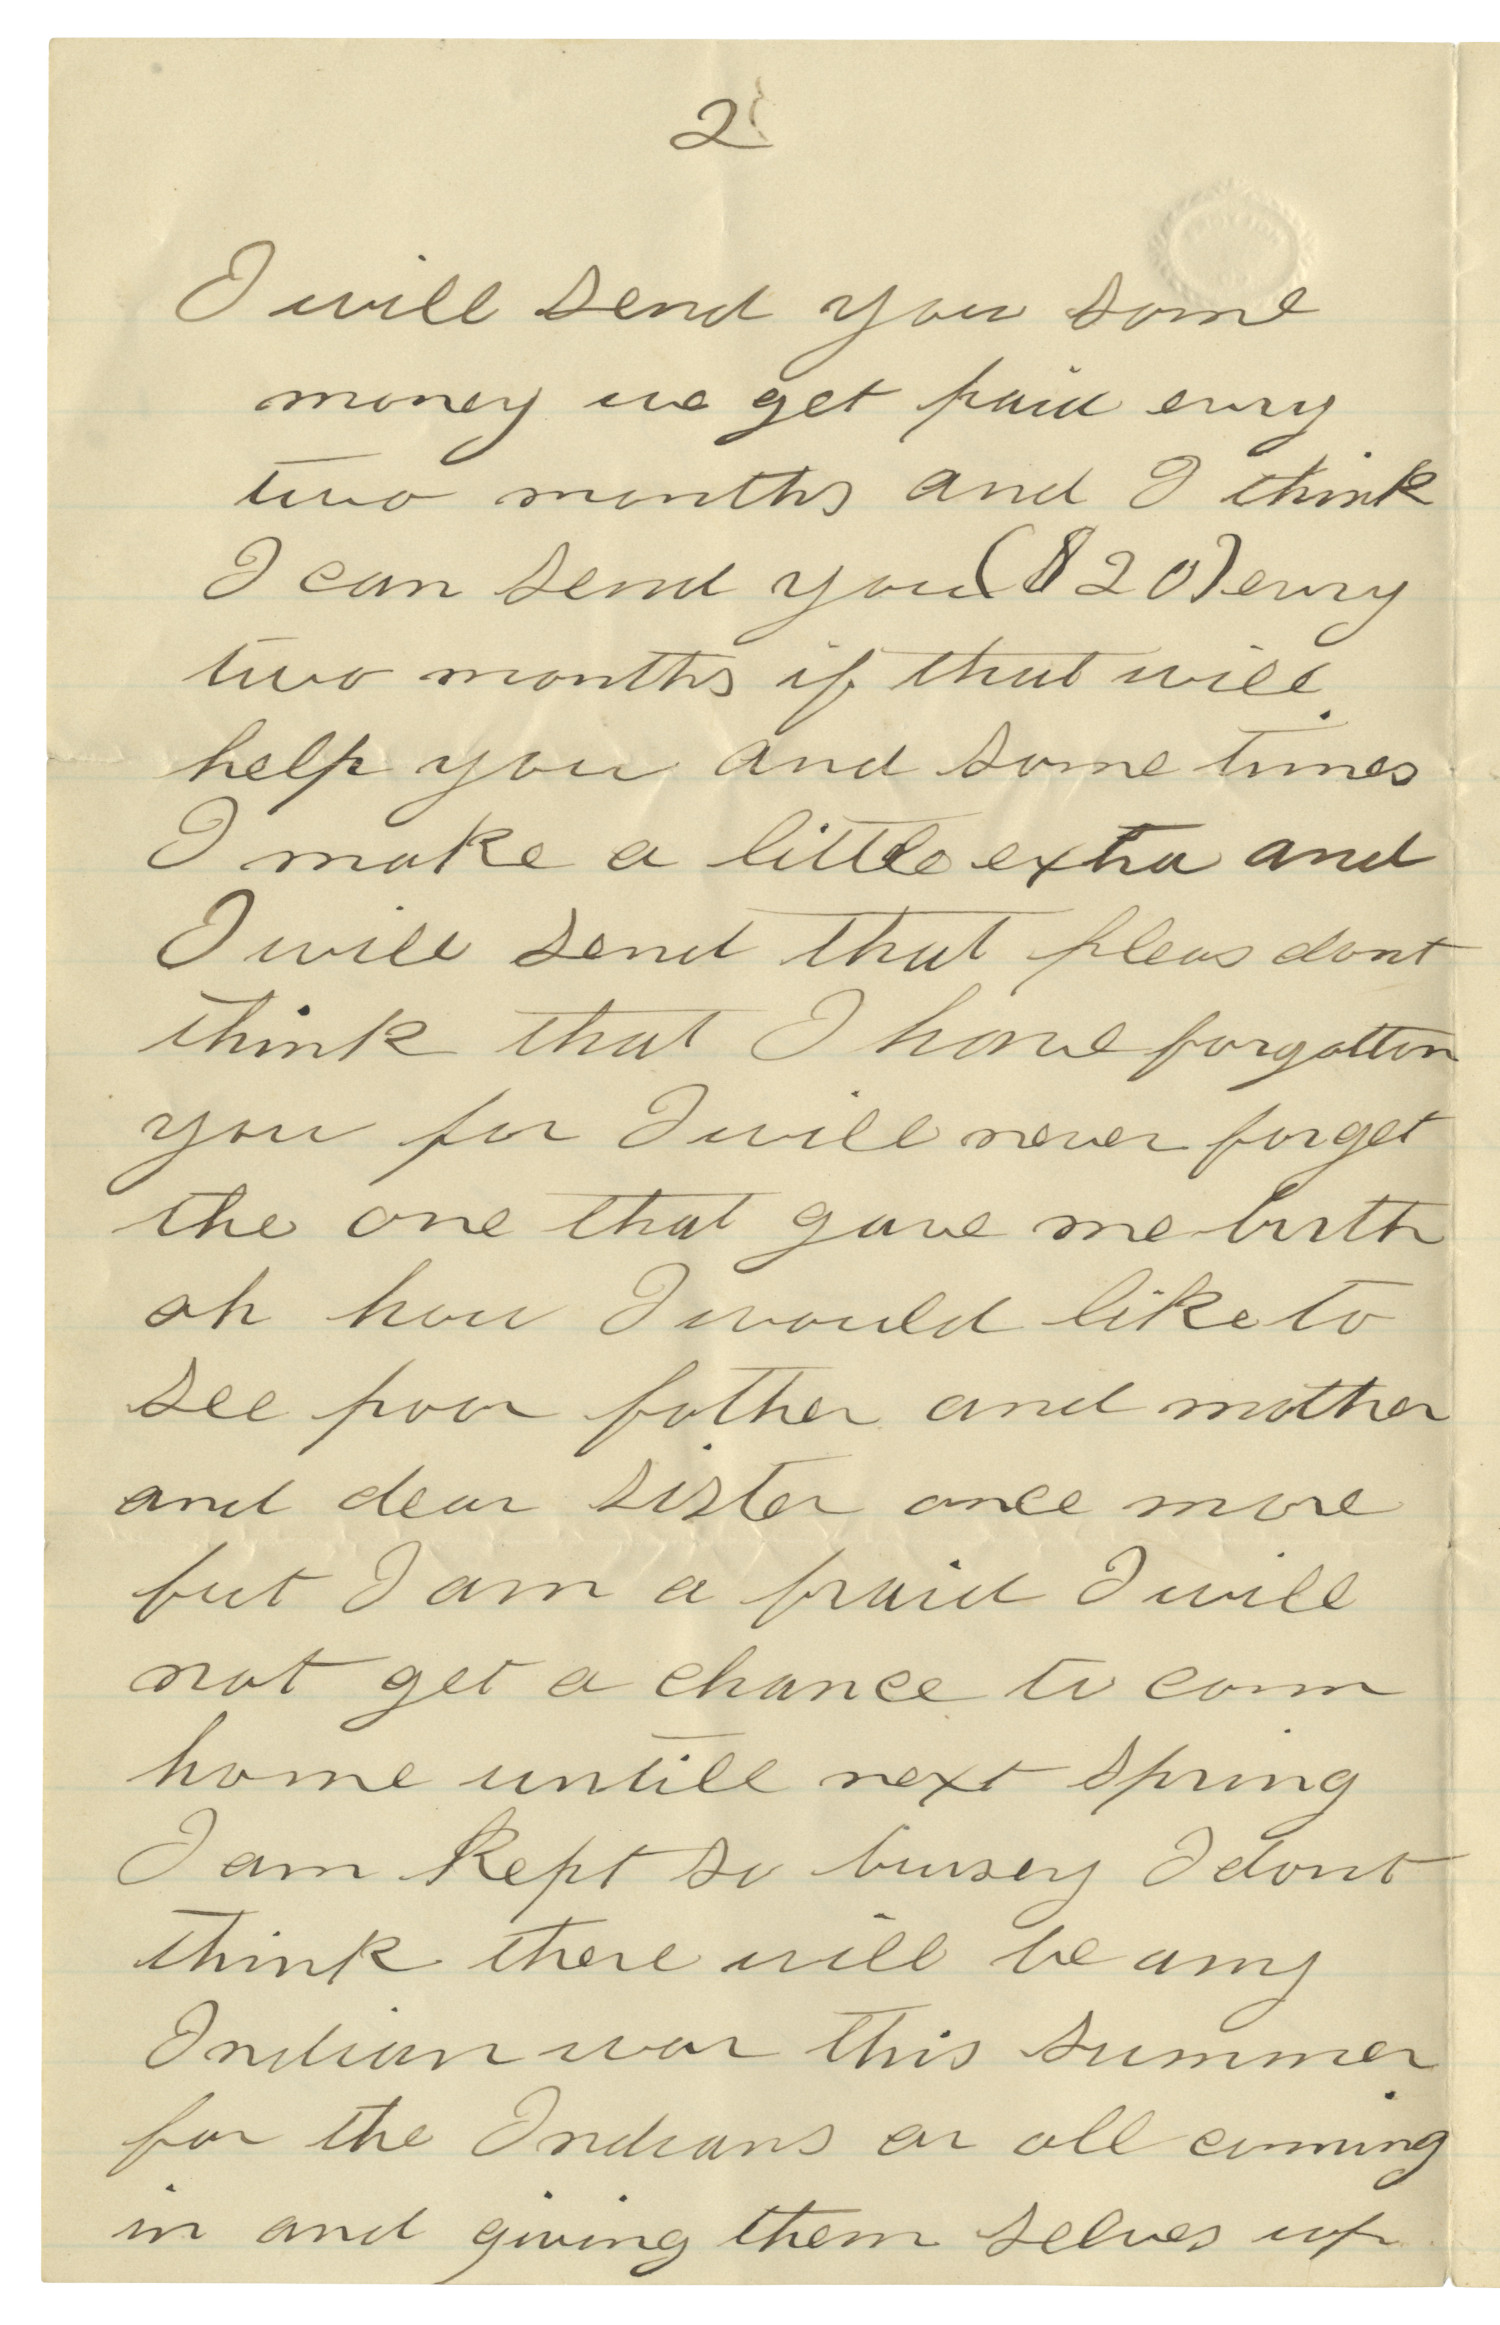 2
I will send you some
money we get paid evry
two months and I think
I can send you ($20) evry
two months if that will
help you and some times
I make a little extra and
I will send that pleas dont
think that I have forgotton
you for I will never forget
the one that gave me birth
oh how I would like to
see poor father and mother
and dear sister once more
but I am a fraid I will
not get a chance to com
home untill next spring
I am kept so buisey I dont
think there will be any
Indian war this summer
for the Indians ar all coming
in and giving them selves up